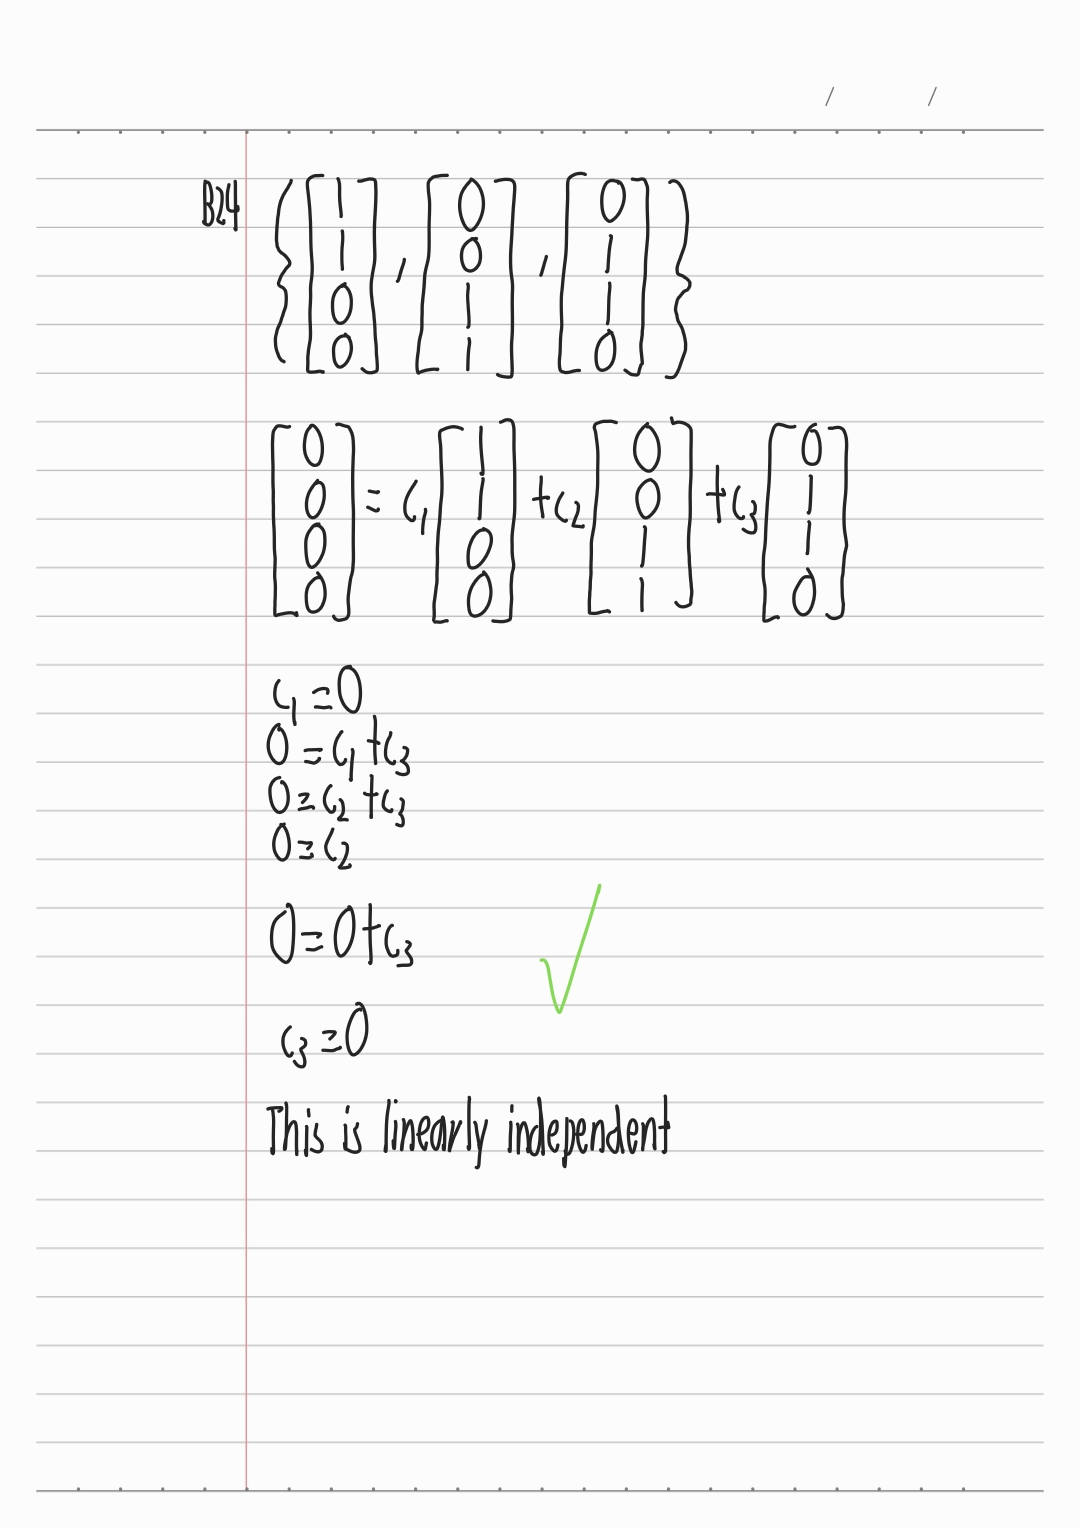 B24 { [1 1 0 0], [0 0 1 1], [0 1 1 0] }
[0 0 0 0] = c₁ [1 1 0 0] + c₂ [0 0 1 1] + c₃ [0 1 1 0]
c₁ = 0
0 = c₁ + c₃
0 = c₂ + c₃
0 = c₂
0 = 0 + c₃
c₃ = 0
This is linearly independent